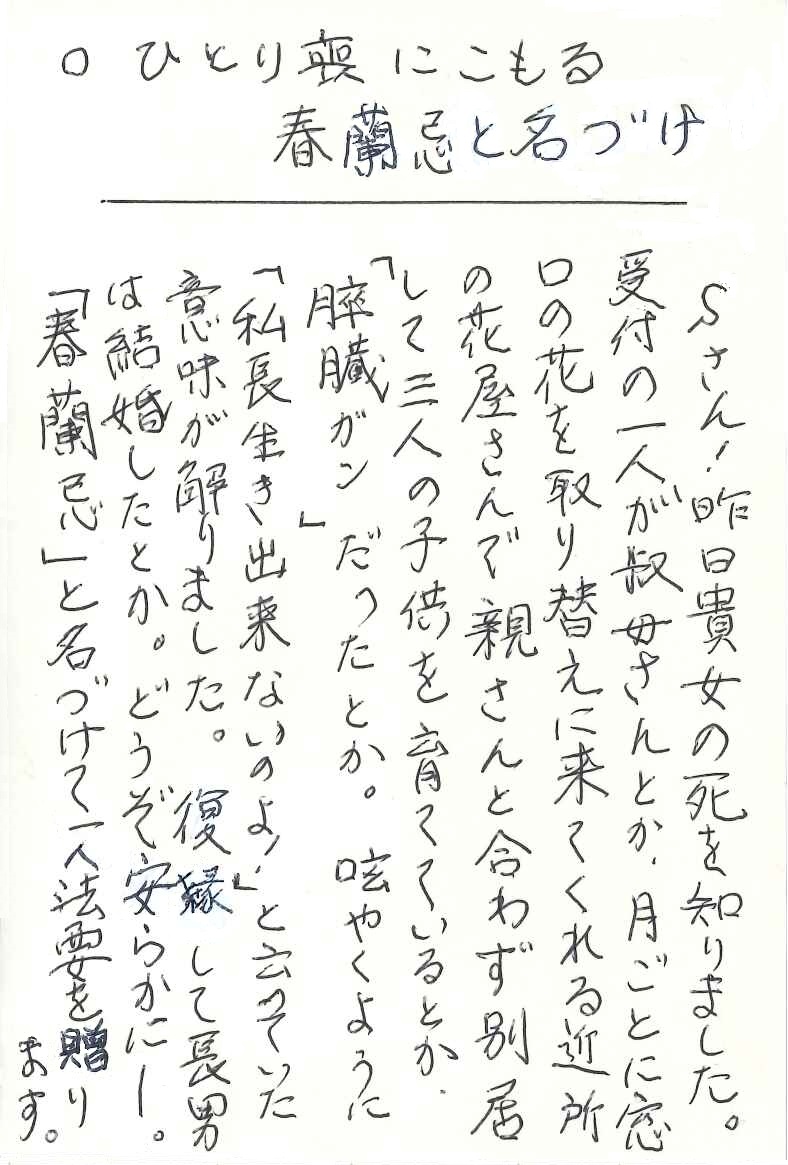 ○ ひとり喪にこもる
春蘭忌と名づけ
Sさん!昨日貴女の死を知りました。
受付の一人が叔母さんとか、月ごとに窓
口の花を取り替えに来てくれる近所
の花屋さんで親さんと合わず別居
して三人の子供を育てているとか、
「膵臓ガン」だったとか。 呟やくように
「私長生き出来ないのよ!」と云っていた
意味が解りました。 復縁して長男
は結婚したとか。どうぞ安らかにー。
「春蘭忌」と名づけて一人法要を贈り
ます。